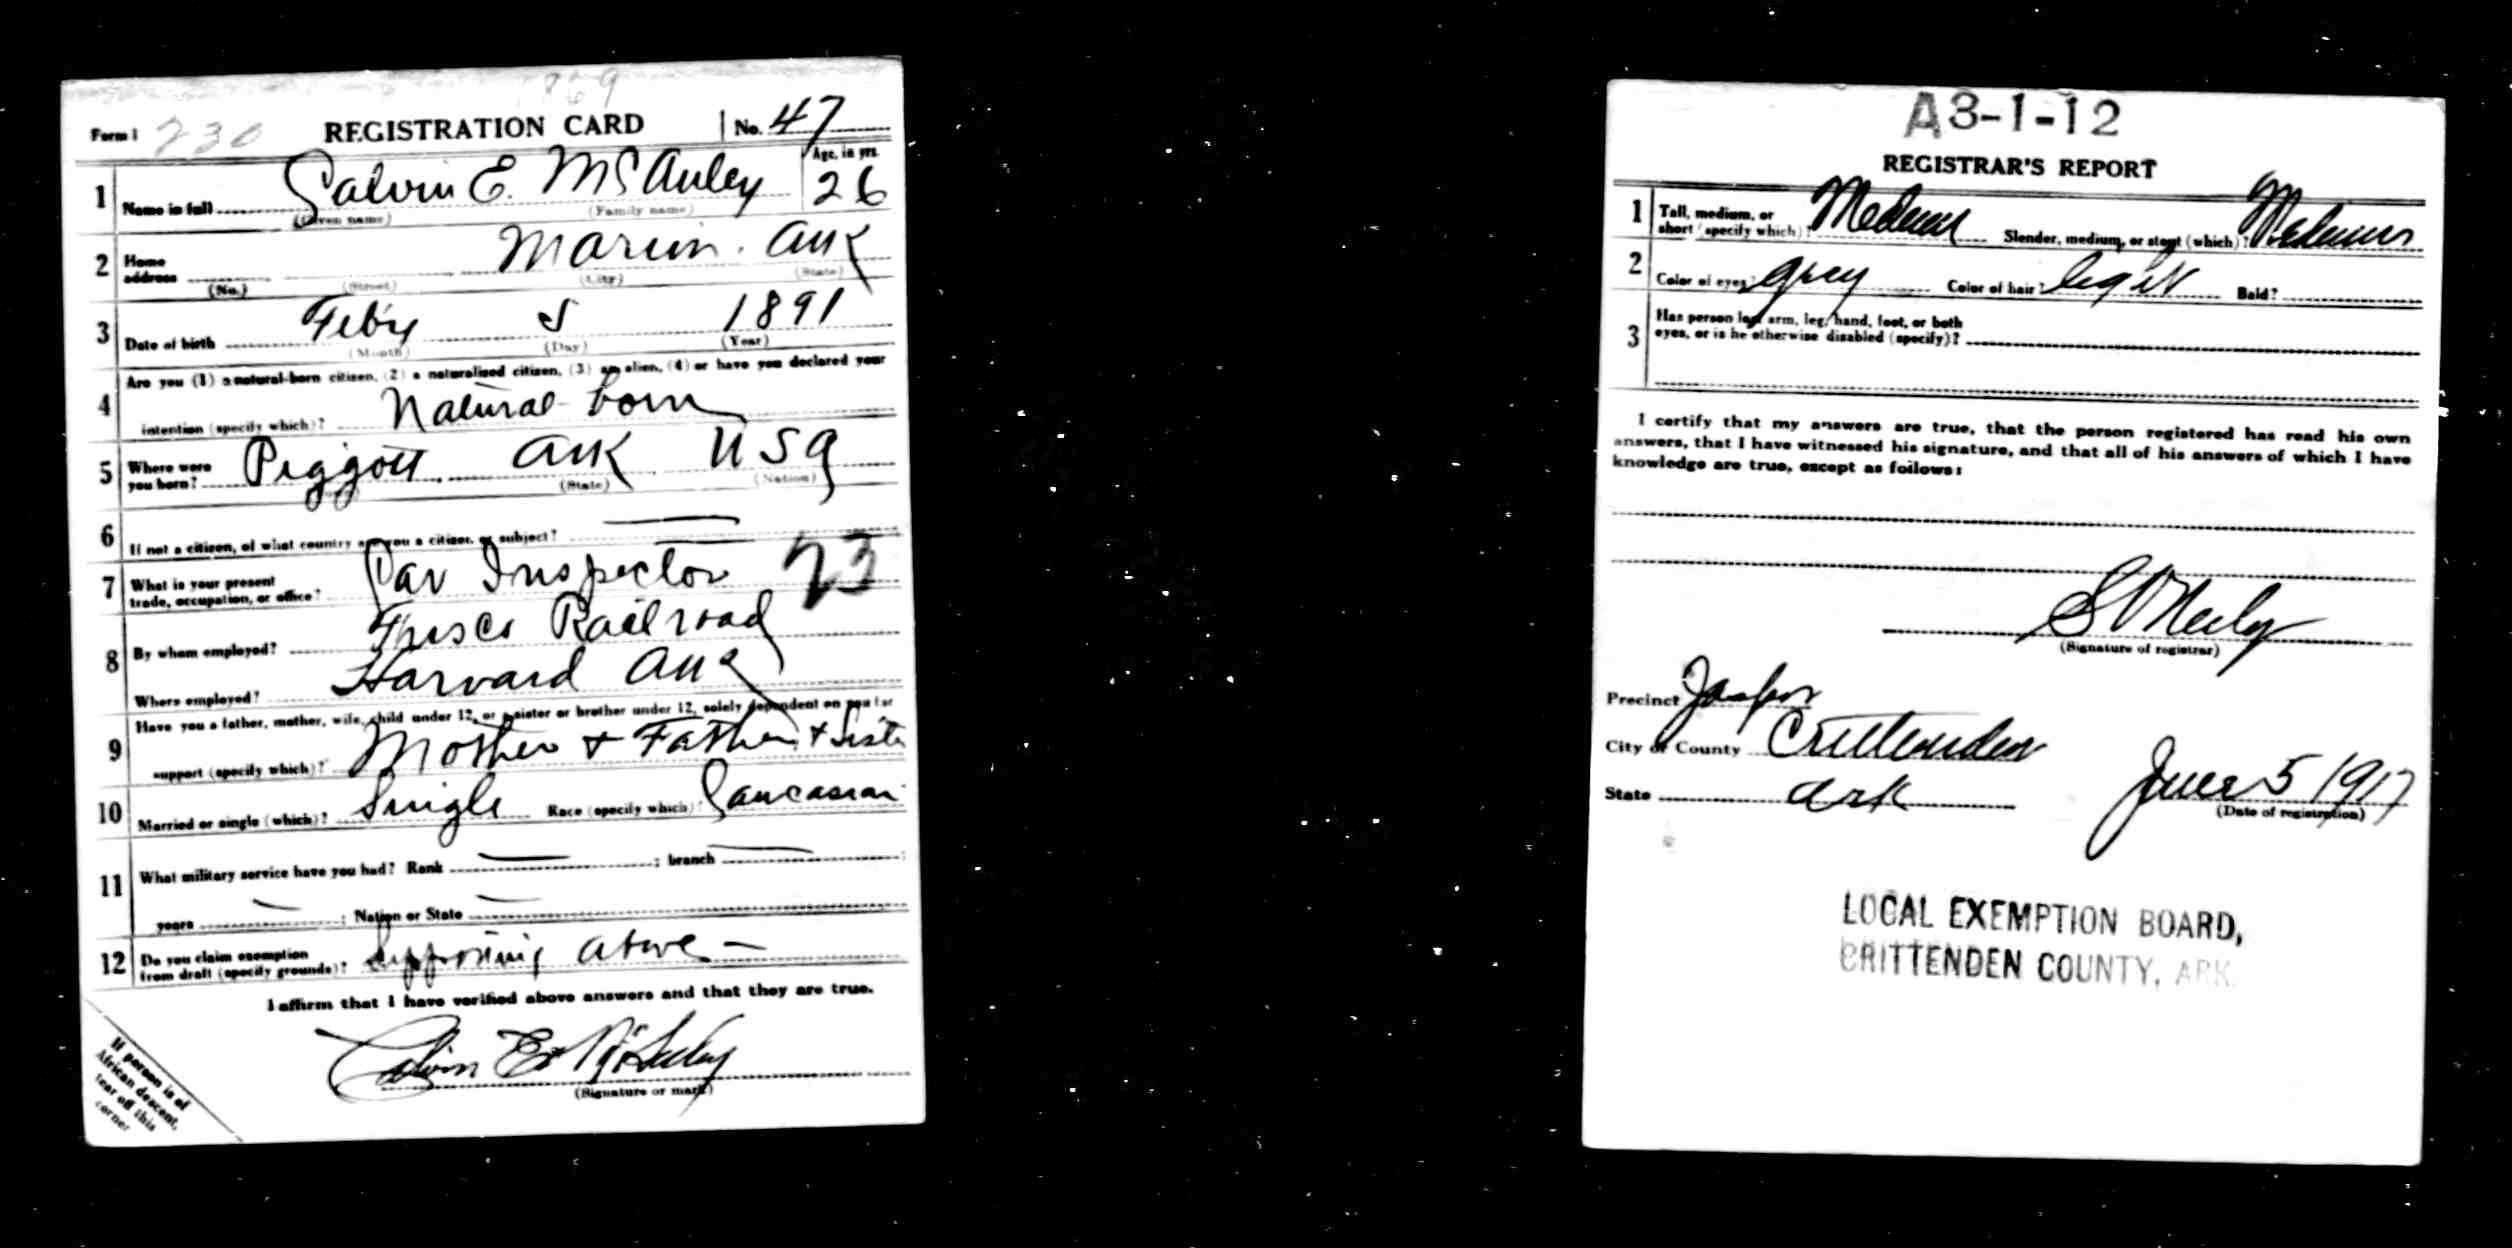 1869
Form 1 230 REGISTRATION CARD No. 47
1 Name in full Calvin E. McAuley Age, in yrs. 26
(Given name) (Family name)
2 Home address Marion Ark
(No.) (Street) (City) (State)
3 Date of birth Feby 5 1891
(Month) (Day) (Year)
Are you (1) a natural-born citizen, (2) a naturalized citizen, (3) an alien, (4) or have you declared your
4 intention (specify which)? Natural born
5 Where were you born? Piggott Ark USA
(State) (Nation)
6 If not a citizen, of what country are you a citizen or subject?
7 What is your present trade, occupation, or office? Car Inspector 23
8 By whom employed? Frisco Railroad
Where employed? Harvard Ark
Have you a father, mother, wife, child under 12, or a sister or brother under 12, solely dependent on you for
9 support (specify which)? Mother + Father + Siste
10 Married or single (which)? Single Race (specify which)? Caucasian
11 What military service have you had? Rank ; branch ;
years ; Nation or State
12 Do you claim exemption from draft (specify grounds)? Supporting above
I affirm that I have verified above answers and that they are true.
Calvin E. McAuley
(Signature or mark)
If person is of
African descent,
tear off this
corner
A3-1-12
REGISTRAR'S REPORT
1 Tall, medium, or short (specify which)? Medium Slender, medium, or stout (which)? Medium
2 Color of eyes? grey Color of hair? light Bald?
3 Has person lost arm, leg, hand, foot, or both
eyes, or is he otherwise disabled (specify)?
I certify that my answers are true, that the person registered has read his own
answers, that I have witnessed his signature, and that all of his answers of which I have
knowledge are true, except as follows:
(Signature of registrar)
Precinct Jasper
City or County Crittenden
State Ark June 5 1917
(Date of registration)
LOCAL EXEMPTION BOARD,
CRITTENDEN COUNTY, ARK.